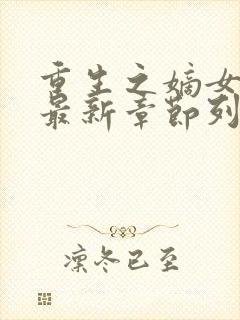 重生之嫡女
最新章节列
凛冬已至